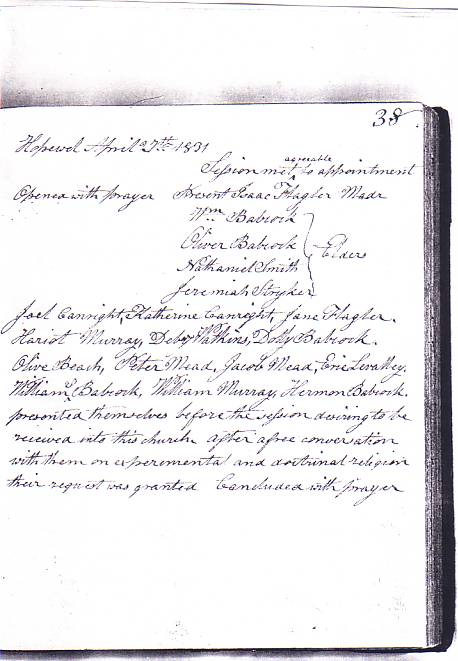 38
Hopewel April 27th 1831
Session met, agreeable to appointment
Opened with prayer Present Isaac Flagler Modr
Wm Babcock
Oliver Babcock
Elders
Nathaniel Smith
Jeremiah Stryker
Joel Canright, Katherine Canright, Jane Flagler.
Hariot Murray, Deby Watkins, Dolly Babcock.
Olive Beach, Peter Mead, Jacob Mead, Eric Levalley,
William Babcock, William Murray, Hermon Babcock.
presented themselves before the session desiring to be
received into this church after afree conversation
with them on experemental and doctrinal religion
their request was granted Concluded with prayer